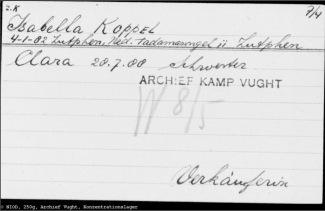 Z.K
Isabella Koppel
4-1-02 Zutphen, Ned. Tadamasingel 11 Zutphen
Clara 20.7.00 Schwester
ARCHIEF KAMP VUGHT
W 8/5
Verkäuferin
© NIOD, 250g, Archief Vught, Konzentrationslager